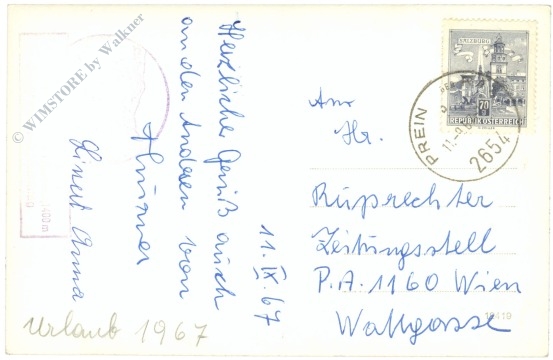 © WIMSTORE by Walkner
Herzliche Grüß auch
an den Anderen von
Linert Anna
11.IX.67
Urlaub 1967
SALZBURG
70
REPUBLIK ÖSTERREICH
PREIN
2654
An
Hr.
Ruprechter
Zeitungsstell
P.A. 1160 Wien
Wattgasse
10419